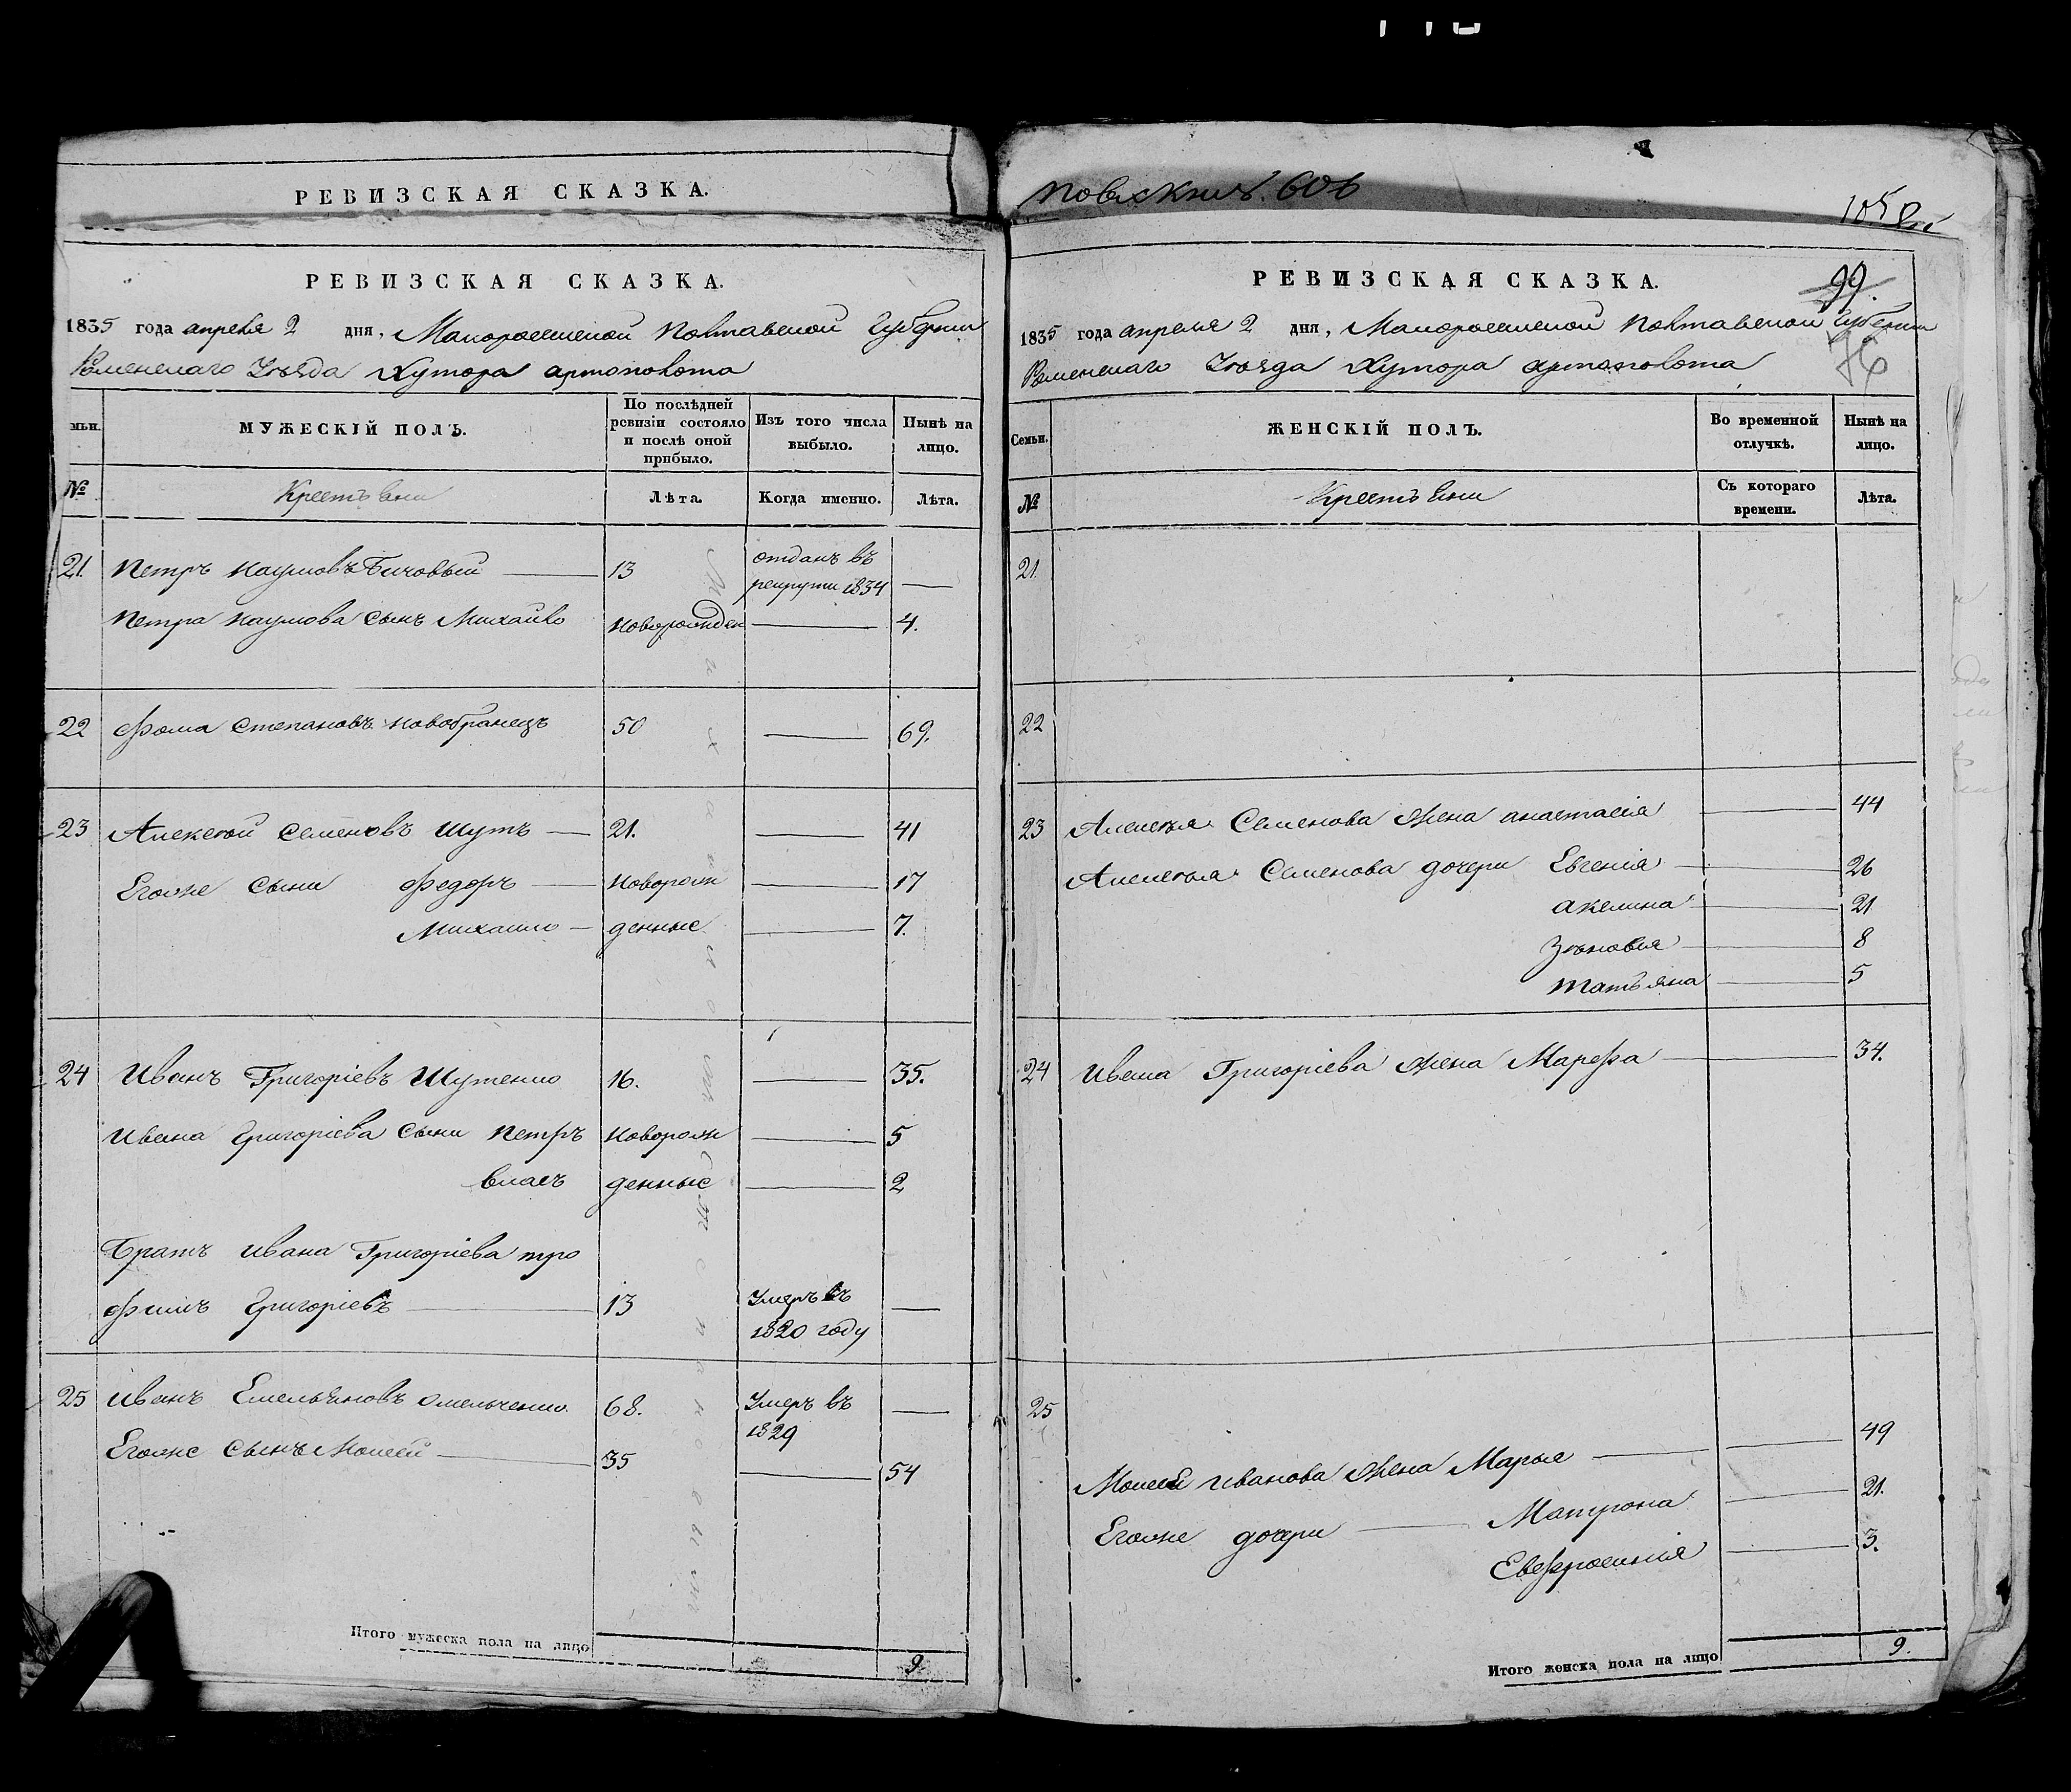 РЕВИЗСКАЯ СКАЗКА.
РЕВИЗСКАЯ СКАЗКА.
1835 года апреля 2 дня, Малоросс͏ійской Полтавской Губерніи
Роменскаго Уѣзда Хутора артополота
МУЖЕСКІЙ ПОЛЪ. По послѣдней ревизіи состояло и послѣ оной прибыло. Изъ того числа выбыло. Нынѣ на лицо.
№ Крестьяни Лѣта. Когда именно. Лѣта.
21. Петръ Наумовъ Бичовый — 13 отданъ въ рекруты 1834 —
Петра Наумова сынъ Михайло новорожден — 4.
22 Фома Степановъ Новобранецъ 50 — 69.
23 Алексѣй Семеновъ Шутъ — 21. — 41
Егоже сыни Федоръ — новорож — 17
Михаило — денные — 7.
24 Иванъ Григоріевъ Шутенко 16. — 35.
Ивана Григоріева сыни Петръ новорож — 5
Власъ денные — 2
Братъ Ивана Григоріева тро
фимъ Григоріевъ — 13 Умеръ въ 1820 году —
25 Иванъ Емельяновъ Омельченко 68. Умеръ въ 1829 —
Егоже сынъ Моисей — 35 — 54
Итого мужеска пола на лицо 9.
606
105
99.
76
РЕВИЗСКАЯ СКАЗКА.
1835 года апреля 2 дня, Малороссійской Полтавской Губерніи
Роменскаго Уѣзда Хутора артополота
Семьи. ЖЕНСКІЙ ПОЛЪ. Во временной отлучкѣ. Нынѣ на лицо.
№ Крестьяни Съ котораго времени. Лѣта.
21
22
23 Алексѣя Семенова жена анастасія — 44
Алексѣя Семенова дочери Евгенія — 26
акелина — 21
Зѣновія — 8
татьяна — 5
24 Ивана Григоріева жена Марфа — 34.
25
Моисея Иванова жена Марья — 49
Егоже дочери — Матрона — 21.
Евфросинія — 3.
Итого женска пола на лицо 9.